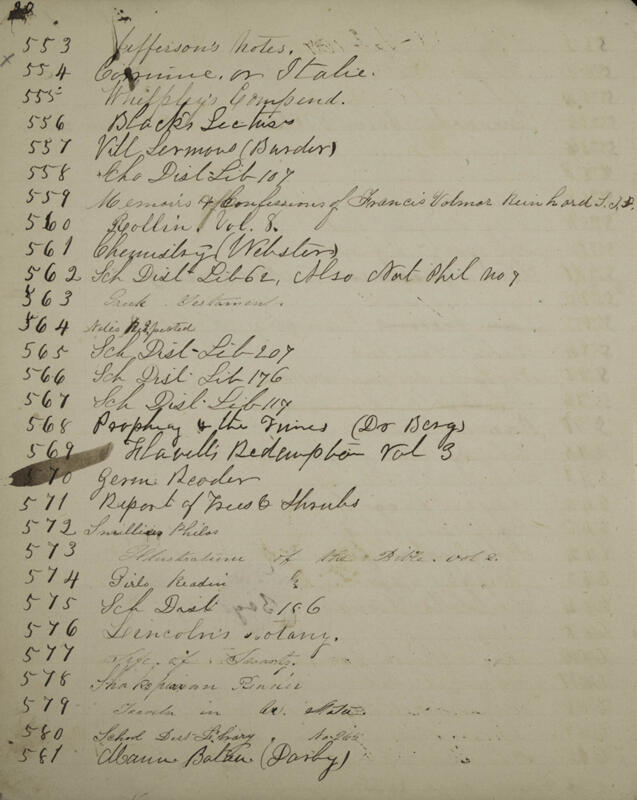 20
553 Jefferson's Notes.
x
554 Corinne. or Italie.
555 Whippley's Compend.
556 Black's Lectu's
557 Vill Sermons (Burder)
558 Scho Dist Lib 107
559 Memoirs & Confessions of Francis Volmar Reinhard S.T.D.
560 Rollin. Vol. 8.
561 Chemistry (Webster)
562 Sch Dist Lib 62, Also Nat Phil no 7
563 Greek Testamen.
564 Notes
565 Sch Dist Lib 207
566 Sch Dist Lib 176
567 Sch Dist Lib 117
568 Prophecy & the Times (Dr Berg)
569 Flavell's Redemption Vol 3
570 Germ Reader
571 Report of Trees & Shrubs
572 Smillies Philos
573 Illustrations of the Bible. vol 2.
574 Girls Readin
575 Sch Dist 186
576 Lincoln's Botany.
577 Life of
578 Shakspearan Reader
579 in
580 School Dist Library. No
581 Mann (Darby)